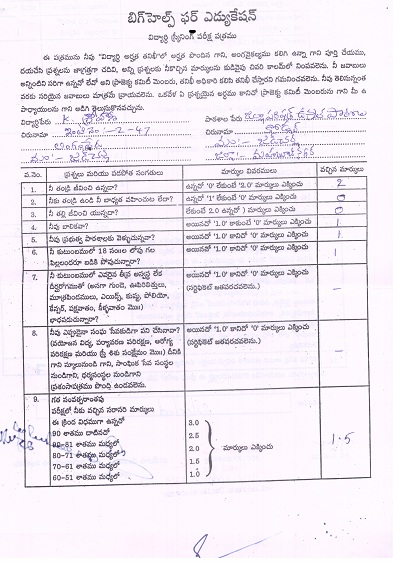 బిగ్‌హెల్ప్ ఫర్ ఎడ్యుకేషన్
విద్యార్థి స్క్రీనింగ్ పరీక్ష పత్రము
ఈ పత్రమును నీవు "విద్యార్థి అర్హత తనిఖీ"లో అర్హత పొందిన గాని, అంగవైకల్యము కలిగి ఉన్నా గాని పూర్తి చేయము,
దయచేసి ప్రశ్నలను జాగ్రత్తగా చదివి, అన్ని ప్రశ్నలకు నీకొచ్చిన మార్కులను కుడివైపు చివరి కాలమ్‌లో నింపవలెను. నీ జవాబులు
అన్నింటిని సరిగా ఉన్నవో లేవో అని ప్రాజెక్టు కమిటీ మెంబరు, తనిఖీ అధికారి కలిసి తనిఖీ చేస్తారని గమనించవలెను. నీకు తెలిసినంత
వరకు సరియైన జవాబులు మాత్రమే వ్రాయవలెను. ఒకవేళ ఏ ప్రశ్నయైన అర్థము కానిచో ప్రాజెక్టు కమిటీ మెంబరును గాని మీ ఉ
పాధ్యాయులను గాని అడిగి తెలుసుకొనవచ్చును.
విద్యార్థిపేరు K.
పాఠశాల పేరు
చిరునామా ఇం.నెం:-2-47
చిరునామా
వ.నెం. ప్రశ్నలు మరియు పరిచేత సంగతులు మార్కుల వివరములు వచ్చిన మార్కులు
1. నీ తండ్రి జీవించి ఉన్నాడా? ఉన్నచో '0' లేకుంటే '2.0' మార్కులు ఎక్కించు 2
2. నీకు తండ్రి ఉండి నీ బాధ్యత వహించుట లేదా? ఉన్నచో '1' లేకుంటే '0' మార్కులు ఎక్కించు 0
3. నీ తల్లి జీవించి యున్నదా? లేకుంటే 2.0 ఉన్నచో ) మార్కులు ఎక్కించు 0
4. నీవు బాలికవా? అయినచో '1.0' కాకుంటే '0' మార్కులు ఎక్కించు 1
5. నీవు ప్రభుత్వ పాఠశాలకు వెళ్ళుచున్నావా? అయినచో '1.0' కానిచో '0' మార్కులు ఎక్కించు 1
6. నీ కుటుంబములో 18 సంఖల లోపు గల
పిల్లలందరూ బడికి పోవుచున్నారా? అయినచో '1.0' కానిచో '0' మార్కులు ఎక్కించు 1
7. నీ కుటుంబములో ఎవరైన తీవ్ర అస్వస్థ లేక
దీర్ఘరోగముతో (అనగా గుండె, ఊపిరితిత్తులు,
మూత్రపిండములు, ఎయిడ్స్, కుష్ఠు, పోలియో,
కేన్సర్, పక్షవాతం, కీళ్ళవాతం మొ॥)
బాధపడుచున్నారా? అయినచో '1.0' కానిచో '0' మార్కులు ఎక్కించు
(సర్టిఫికెట్ జతపరచవలెను.) –
8. నీవు ఎప్పుడైనా సంఘ సేవకుడిగా పని చేసినావా?
(వయోజన విద్య, పర్యావరణ పరిరక్షణ, ఆరోగ్య
పరిరక్షణ మరియు స్త్రీ శిశు సంక్షేమం మొ॥) దీనికి
గాని స్కూలునుండి గాని, సాంఘిక సేవ సంస్థల
నుండిగాని, ధర్మసంస్థల నుండిగాని
ప్రశంసాపత్రము పొంది ఉండవలెను. అయినచో '1.0' కానిచో '0' మార్కులు ఎక్కించు
(సర్టిఫికెట్ జతపరచవలెను.) –
9. గత సంవత్సరాంతపు
పరీక్షలో నీకు వచ్చిన సరాసరి మార్కులు
ఈ క్రింద విధముగా ఉన్నచో
90 శాతము దాటినచో 3.0
90-81 శాతము మధ్యలో 2.5
80-71 శాతము మధ్యలో 2.0
70-61 శాతము మధ్యలో 1.5
60-51 శాతము మధ్యలో 1.0
మార్కులు ఎక్కించు 1.5